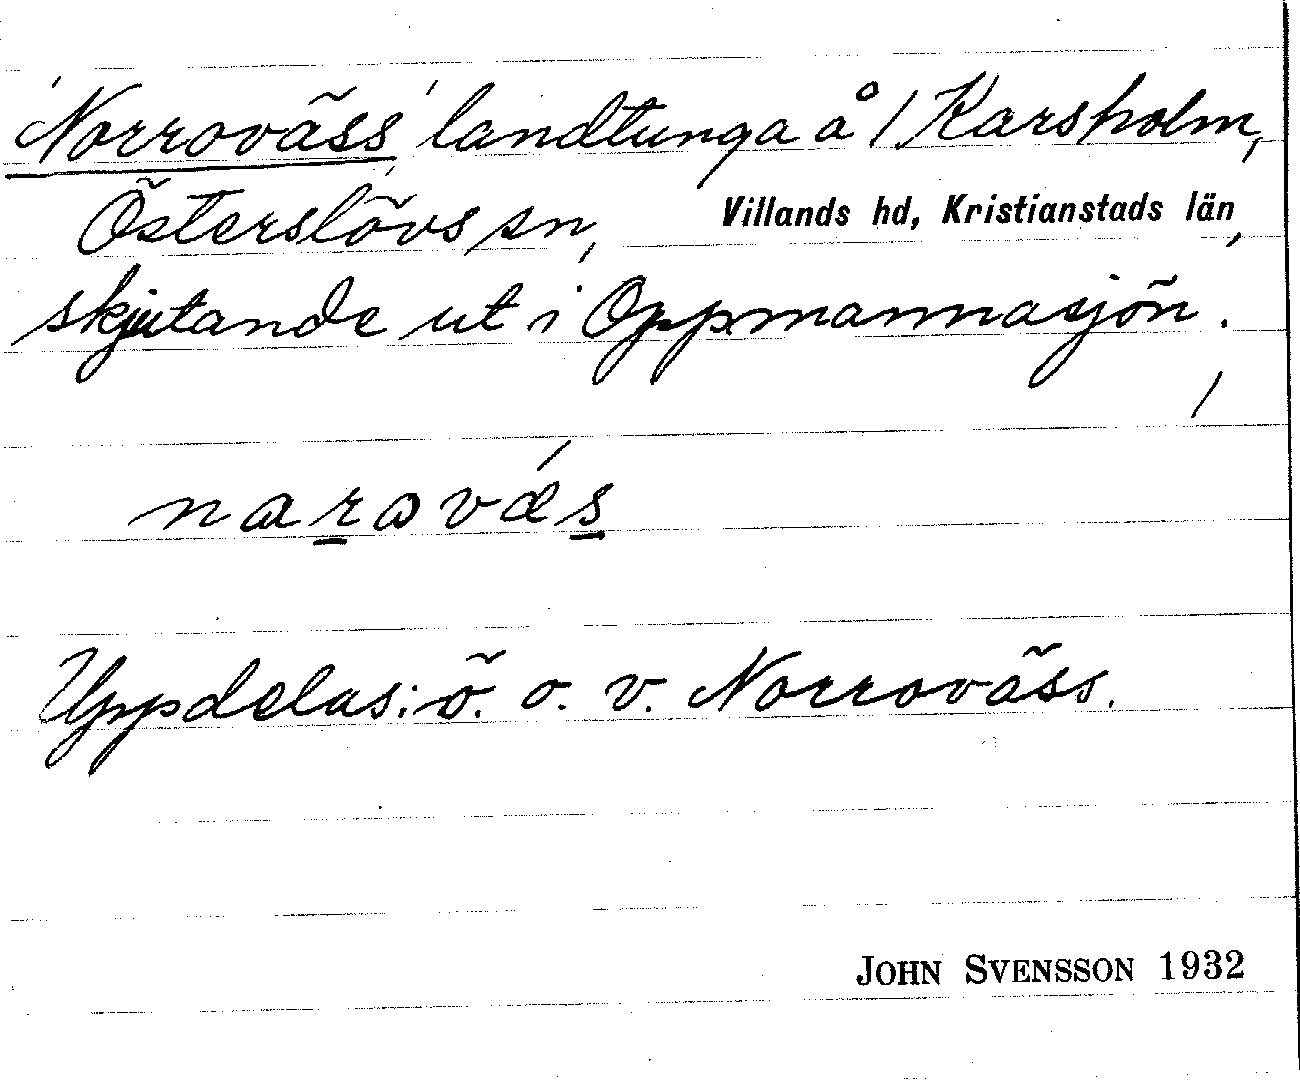 'Norroväss' landtunga å 1 Karsholm,
Österslövs sn, Villands hd, Kristianstads län,
skjutande ut i Oppmannasjön.
narovæs
Uppdelas: ö. o. v. Norroväss.
JOHN SVENSSON 1932